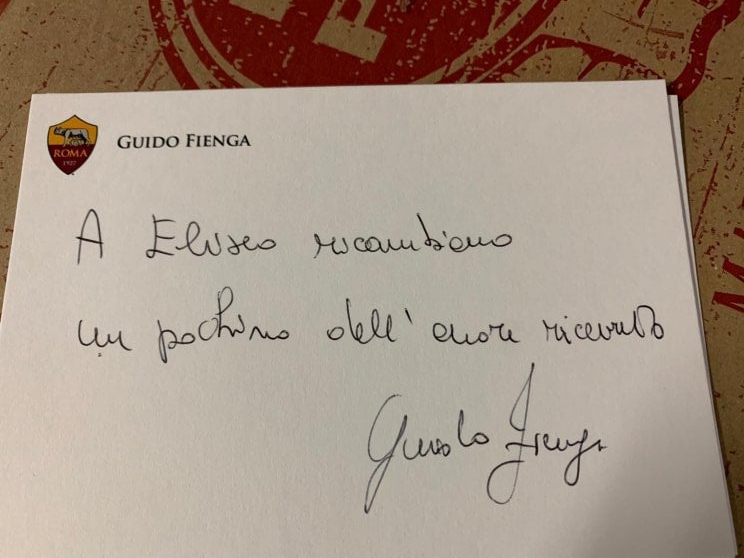 ROMA
1927
GUIDO FIENGA
A Eliseo ricambiamo
un pochino dell' amore ricevuto
Guido Fienga